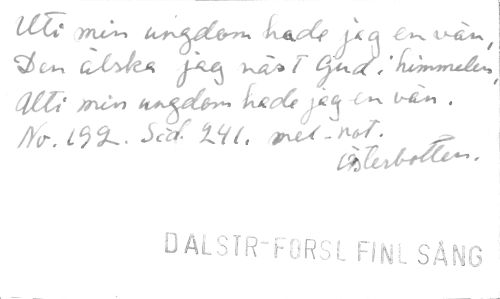 Uti min ungdom hade jag en vän,
Den älska jag näst Gud i himmelen,
Uti min ungdom hade jag en vän.
No. 192. Sid. 241. mel-not.
Österbotten.
DALSTR-FORSL FINL SÅNG